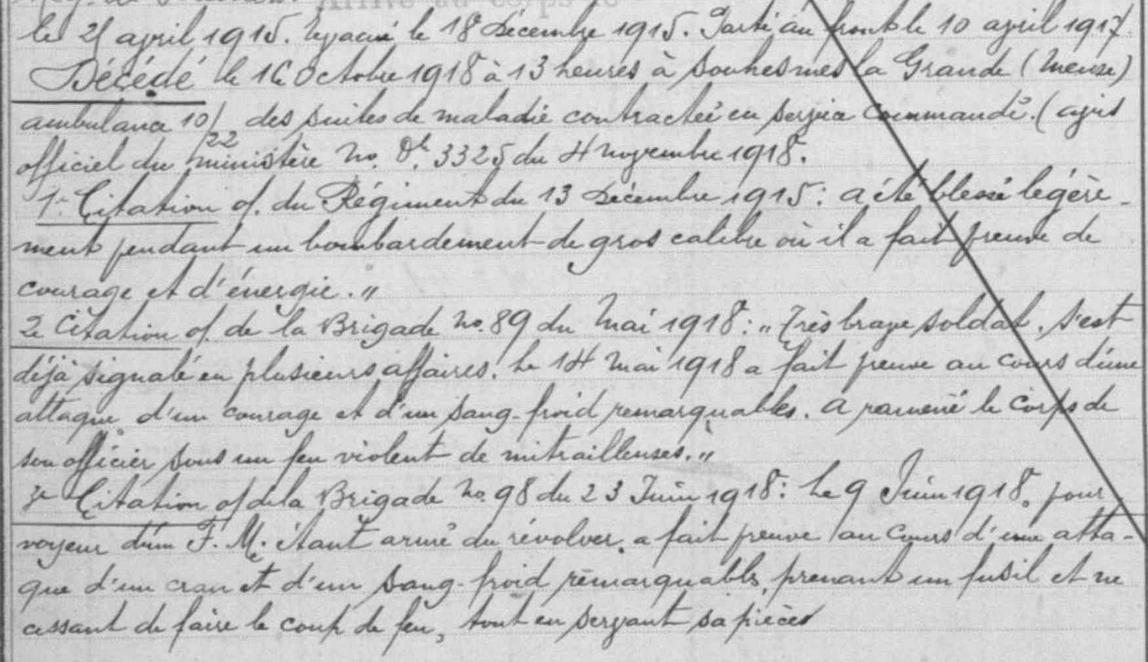 le 21 avril 1915. Evacué le 18 Décembre 1915. Parti au front le 10 avril 1917.
Décédé le 16 Octobre 1918 à 13 heures à Souhesmes la Grande (Meuse)
ambulance 10/22 des suites de maladie contractée en service commandé. (avis
officiel du ministère No. Dt. 3325 du 4 novembre 1918.
1e Citation o/. du Régiment du 13 Décembre 1915: a été blessé légère-
ment pendant un bombardement de gros calibre où il a fait preuve de
courage et d'énergie."
2 Citation o/. de la Brigade No. 89 du Mai 1918: "Très brave soldat, s'est
déjà signalé en plusieurs affaires. Le 14 Mai 1918 a fait preuve au cours d'une
attaque d'un courage et d'un sang-froid remarquables. A ramené le corps de
son officier sous un feu violent de mitrailleuses."
3e Citation o/ de la Brigade No. 98 du 23 Juin 1918: Le 9 Juin 1918, pour-
voyeur d'un F. M. étant armé du révolver, a fait preuve au cours d'une atta-
que d'un cran et d'un sang-froid remarquables, prenant un fusil et ne
cessant de faire le coup de feu, tout en servant sa pièce